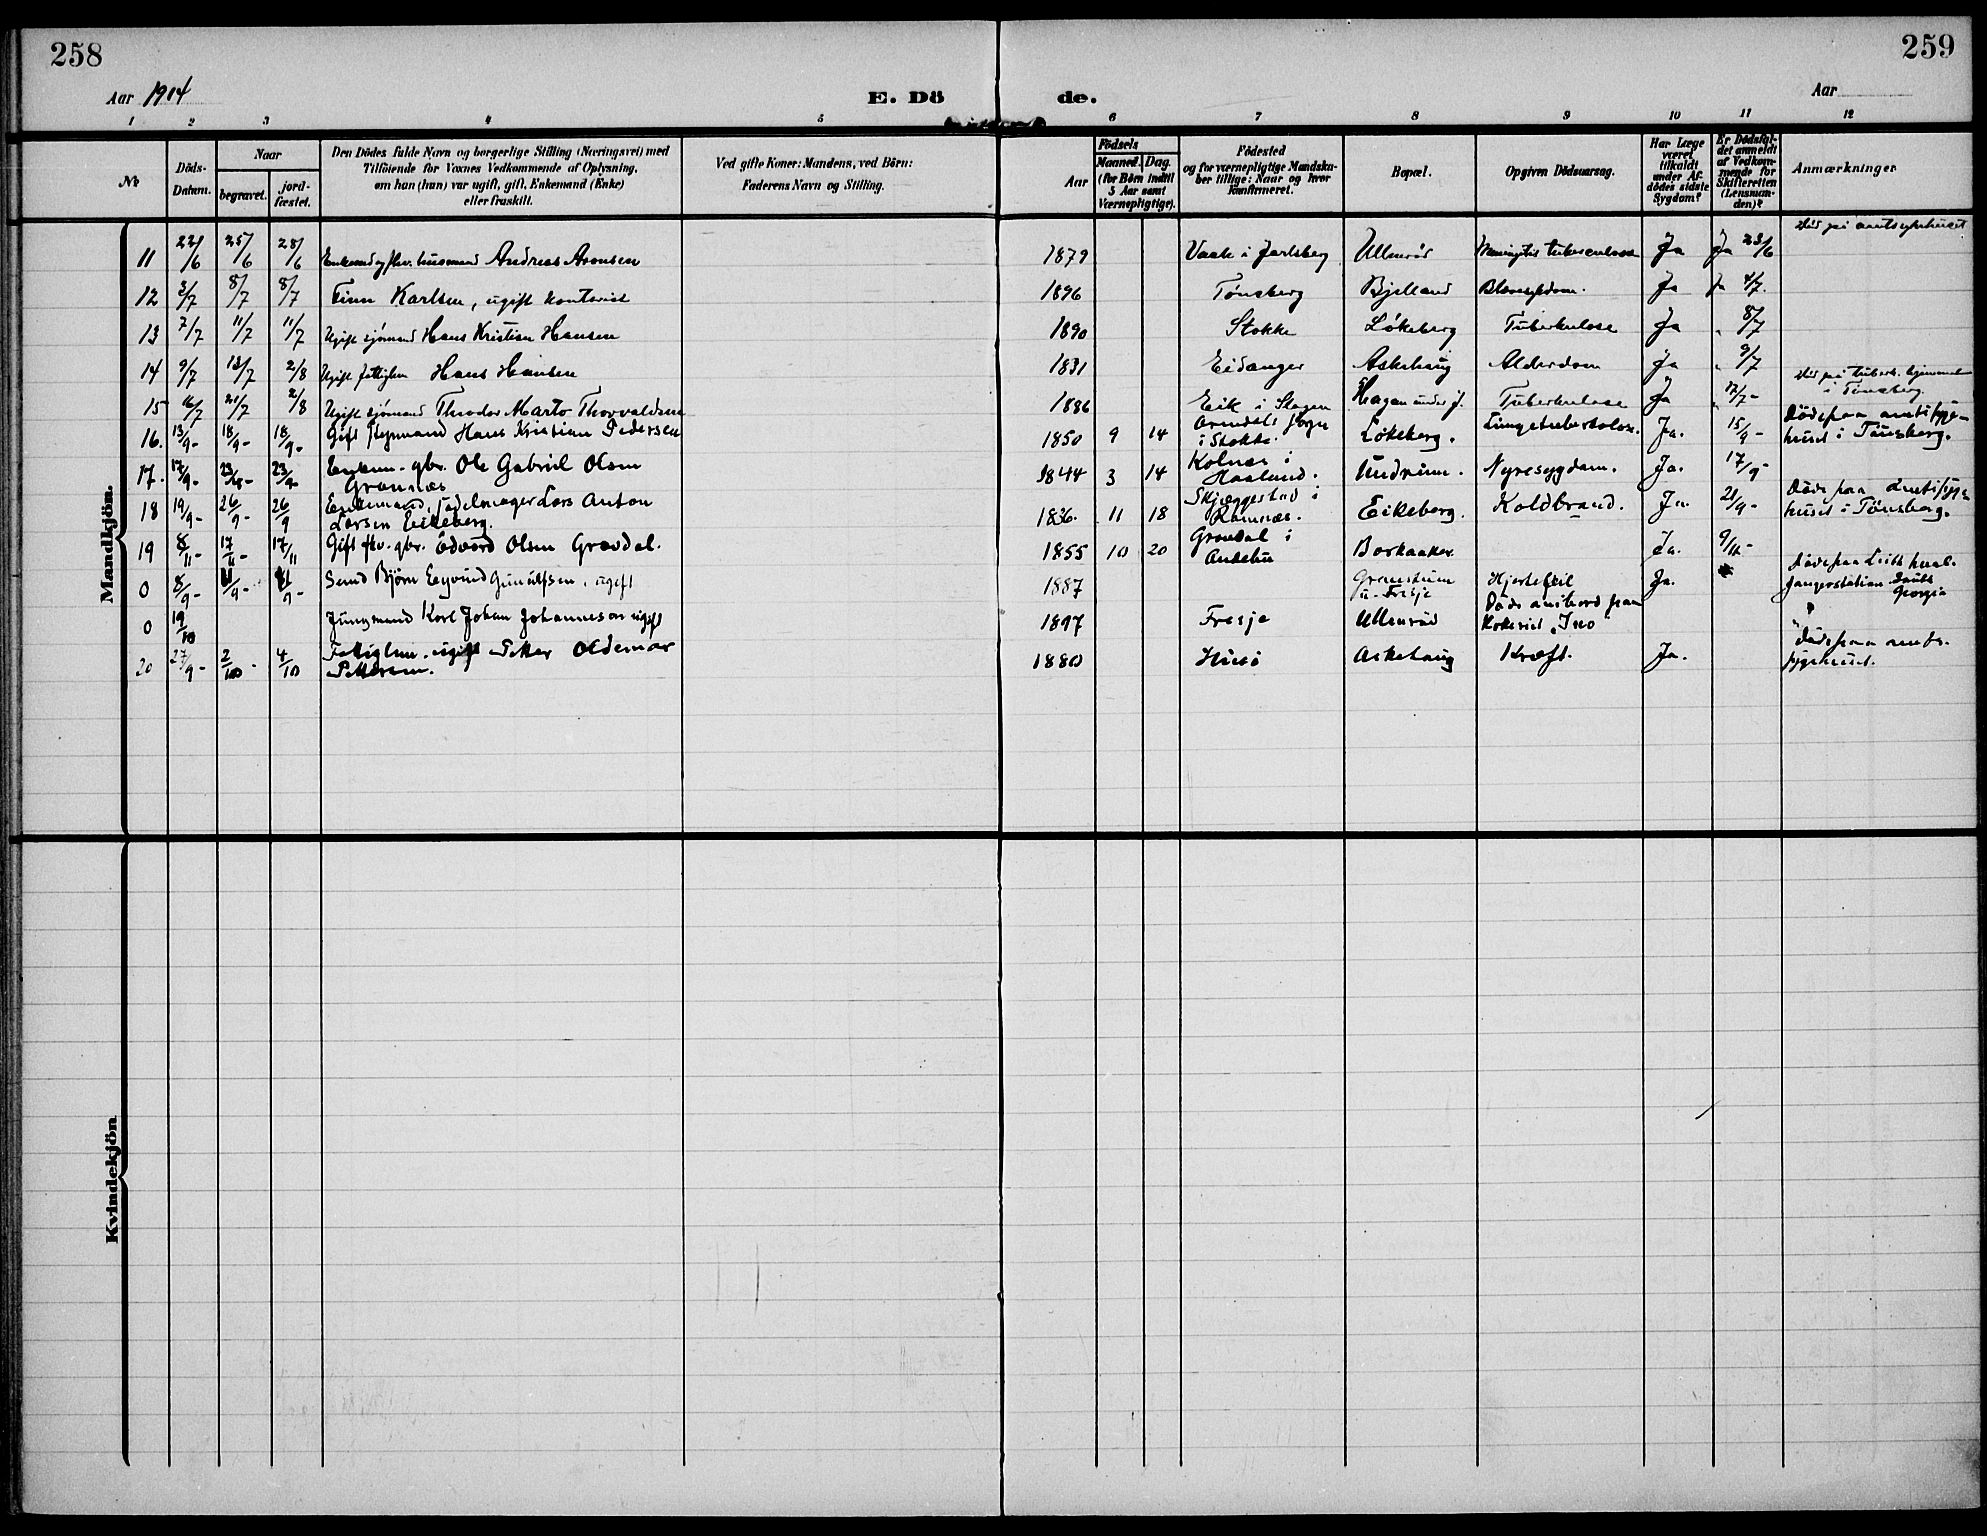 258
259
Aar 1914
E. Dö de.
Aar
1 2 3 4 5 6 7 8 9 10 11 12
No.
Döds-
Datum.
Naar
begravet.
jord-
fæstet.
Den Dödes fulde Navn og borgerlige Stilling (Næringsvei) med
Tilföiende for Voxnes Vedkommende af Oplysning,
om han (hun) var ugift, gift, Enkemand (Enke)
eller fraskilt.
Ved gifte Koner: Mandens, ved Börn:
Faderens Navn og Stilling.
Aar
Födsels
Maaned. Dag.
(for Börn indtil
5 Aar samt
Værnepligtige).
Födested
og for værnepligtige Mandska-
ber tillige: Naar og hvor
konfirmeret.
Bopæl.
Opgiven Dödsaarsag.
Har Læge
været
tilkaldt
under Af-
dödes sidste
Sygdom?
Er Dödsfal-
det anmeldt
af Vedkom-
mende for
Skifteretten
(Lensman-
den)?
Anmærkninger
Mandkjön.
Död på amtssykehuset
11 22/6 25/6 28/6 Enkemand, fhv. husmand Andreas Aronsen 1879 Vaale i Jarlsberg Ullerød Meningitis tuberculosa Ja Ja 23/6
12 3/7 8/7 8/7 Finn Karlsen, ugift kontorist 1896 Tønsberg Bjelland Ja Ja 4/7.
13 7/7 11/7 11/7 Ugift sjømand Hans Kristian Hansen 1890 Stokke Løkeberg Tuberkulose Ja " 8/7
14 9/7 13/7 2/8 Ugift fattiglem Hans Hansen 1831 Eidanger Askehaug Alderdom Ja " 9/7
Död på tuberk. hjemmet
i Tønsberg
15 16/7 21/7 2/8 Ugift sjømand Theodor Marto Thorvaldsen 1886 Eik i Slagen Hagen under J. Tuberkulose Ja " 17/7 -
16. 13/9- 18/9- 18/9- Gift Hans Kristian Pedersen 1850 9 14
i Stokke. Løkeberg. Lungetuberkulose. Ja. 15/9 -
Döde paa amtssyge-
huset i Tönsberg.
17. 17/9- 23/9- 23/9- Enkem. gbr. Ole Gabriel Olsen
Grannæs 1844 3 14 Kolnæs i
Haaland. Undrum. Nyresygdom. Ja. 17/9 -
18 19/9- 26/9- 26/9 Enkemand, sadelmager Lars Anton
Larsen Eikeberg. 1836. 11 18 Skjæggestad i
Ramnæs. Eikeberg. Koldbrand. Ja. 21/9 -
Döde paa Amtssyge-
huset i Tönsberg.
19 8/11- 17/11- 17/11 Gift fhv. gbr. Edvard Olsen Gravdal. 1855 10 20 Gravdal i
Andebu Borkaaker. Ja. 9/11 -
0 8/9- Bjørn Eyvind Gunulfsen, ugift 1887
u. Fresje Hjertefeil Ja.
Döde paa Leith hval-
fangerstation South
Georgia
0 19/10 Jungmand Karl Johan Johannesen ugift 1897 Fresje Ullerød Döde ombord paa
"Ino"
20 27/9- 2/10 - 4/10 Fattiglem. ugift Petter Oldemar
Pettersen. 1880 Husö Askehaug Kræft. Ja.
Döde paa amts-
sygehuset.
Kvindekjön